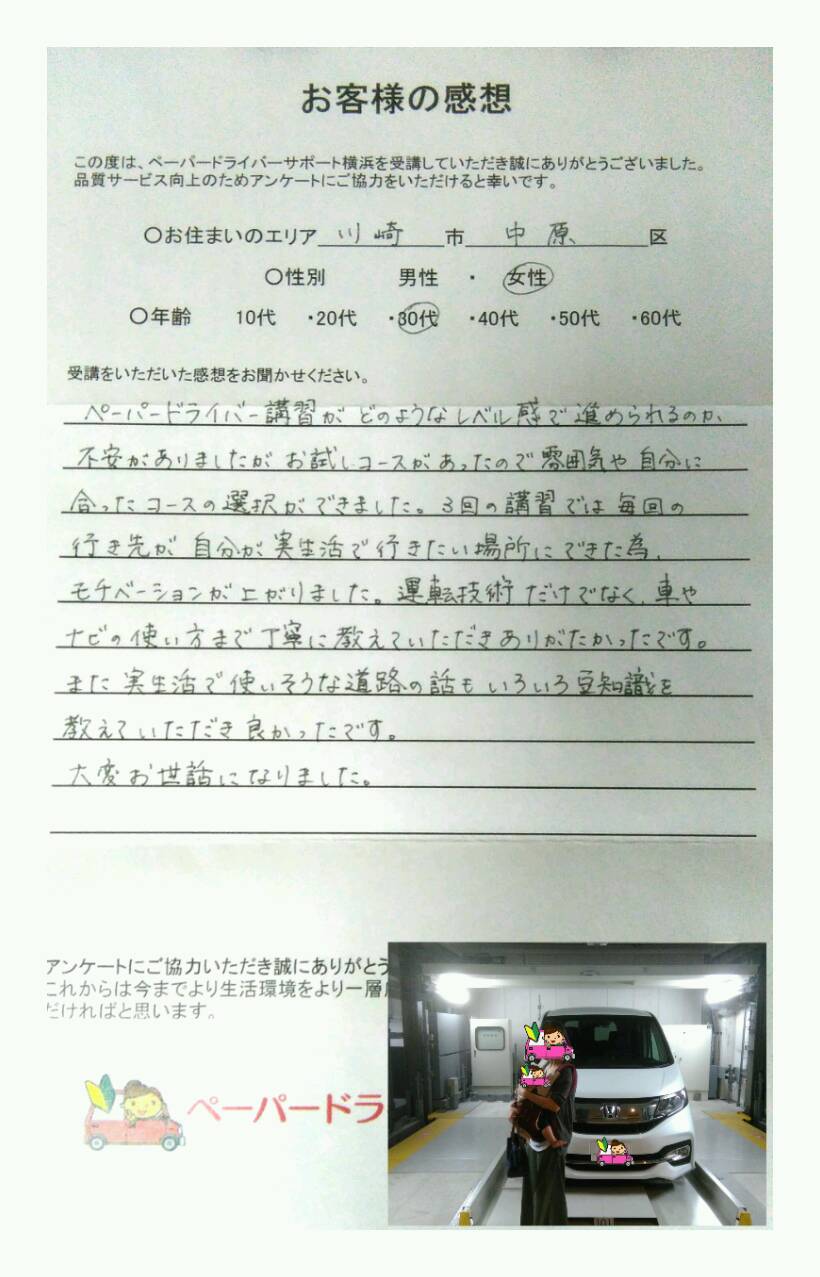 お客様の感想
この度は、ペーパードライバーサポート横浜を受講していただき誠にありがとうございました。
品質サービス向上のためアンケートにご協力をいただけると幸いです。
〇お住まいのエリア 川崎 市 中原 区
〇性別 男性 ・ 女性
〇年齢 10代 ・20代 ・30代 ・40代 ・50代 ・60代
受講をいただいた感想をお聞かせください。
ペーパードライバー講習が どのようなレベル感で進められるのか、
不安がありましたが お試しコースがあったので雰囲気や自分に
合ったコースの選択ができました。3回の講習では毎回の
行き先が 自分が実生活で行きたい場所にできた為、
モチベーションが上がりました。運転技術だけでなく、車や
ナビの使い方まで丁寧に教えていただきありがたかったです。
また実生活で使いそうな道路の話もいろいろ豆知識を
教えていただき良かったです。
大変お世話になりました。
アンケートにご協力いただき誠にありがとう
これからは今までより生活環境をより一層
だければと思います。
ペーパードラ